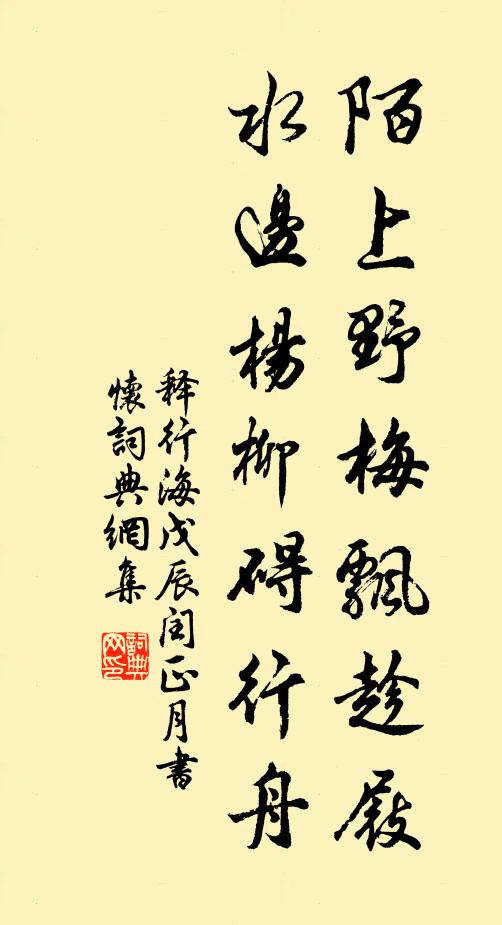 陌上野梅飄趁屐
水邊楊柳碍行舟
释行海戊辰闰正月書
懷詞典網集
詞典網印